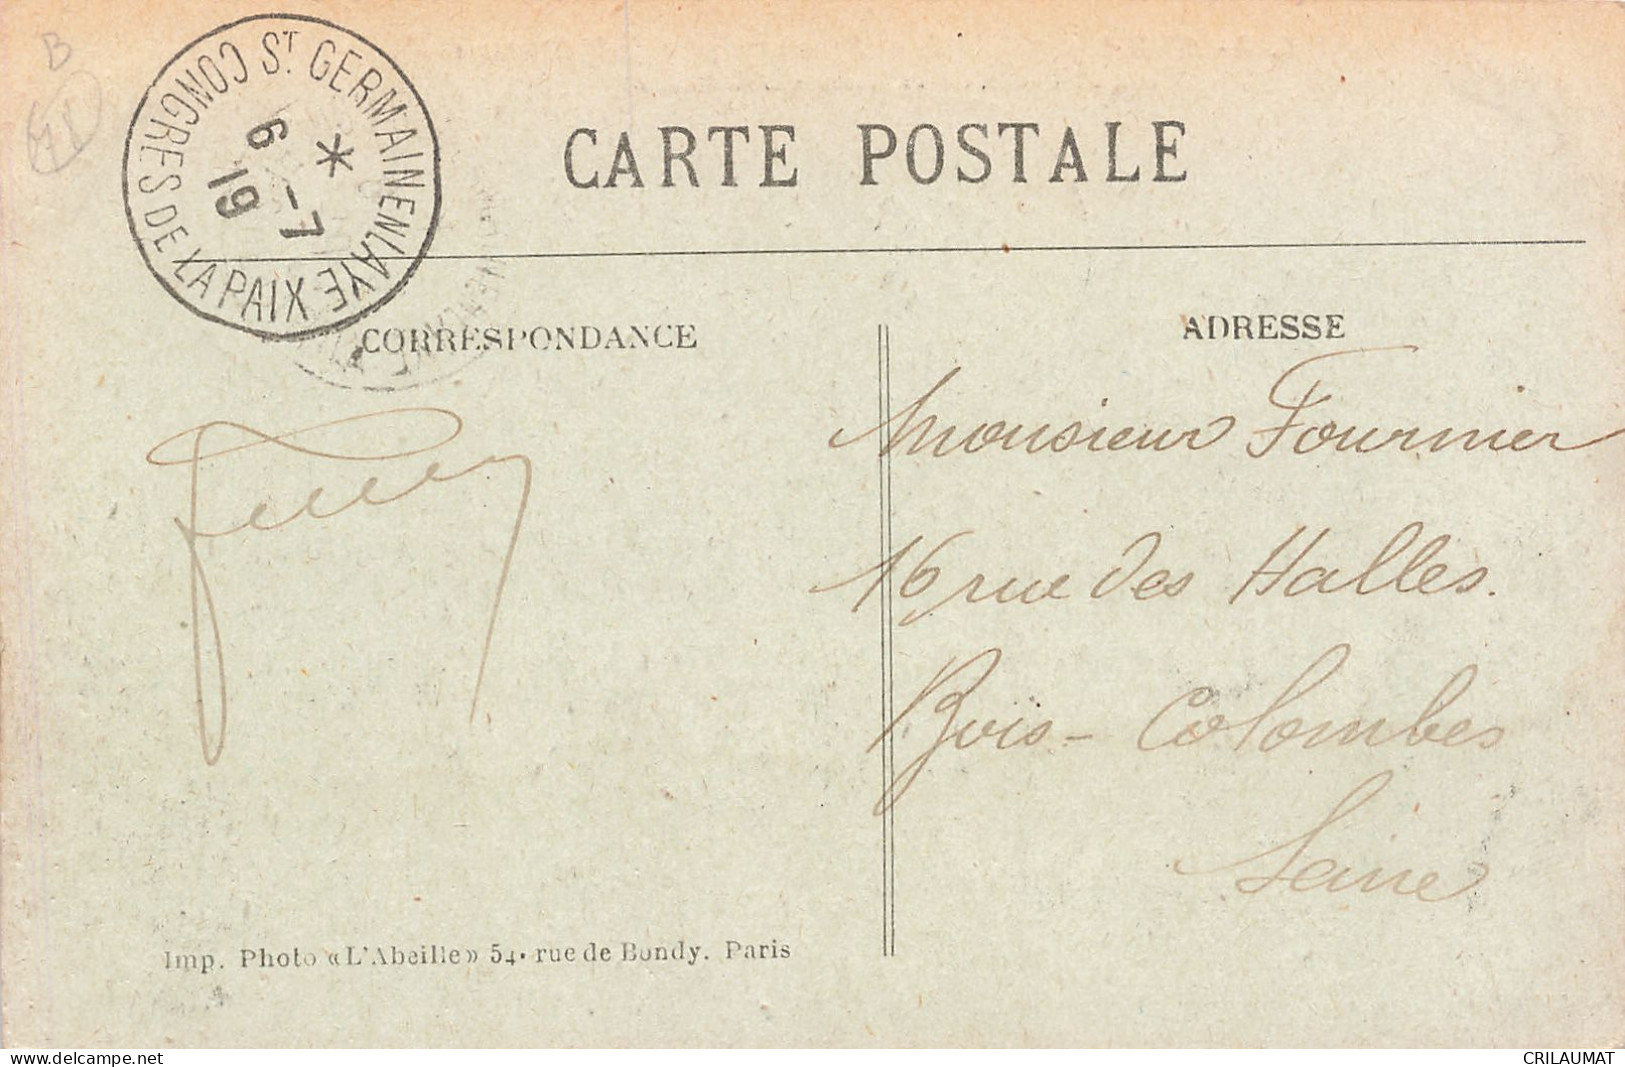 B
ST. GERMAINENLAYE
CONGRES DE LA PAIX
*
6 -7
19
CARTE POSTALE
CORRESPONDANCE
ADRESSE
Monsieur Fournier
16 rue des Halles.
Bois-Colombes
Seine
Imp. Photo «L'Abeille» 54. rue de Bondy. Paris
www.delcampe.net
CRILAUMAT